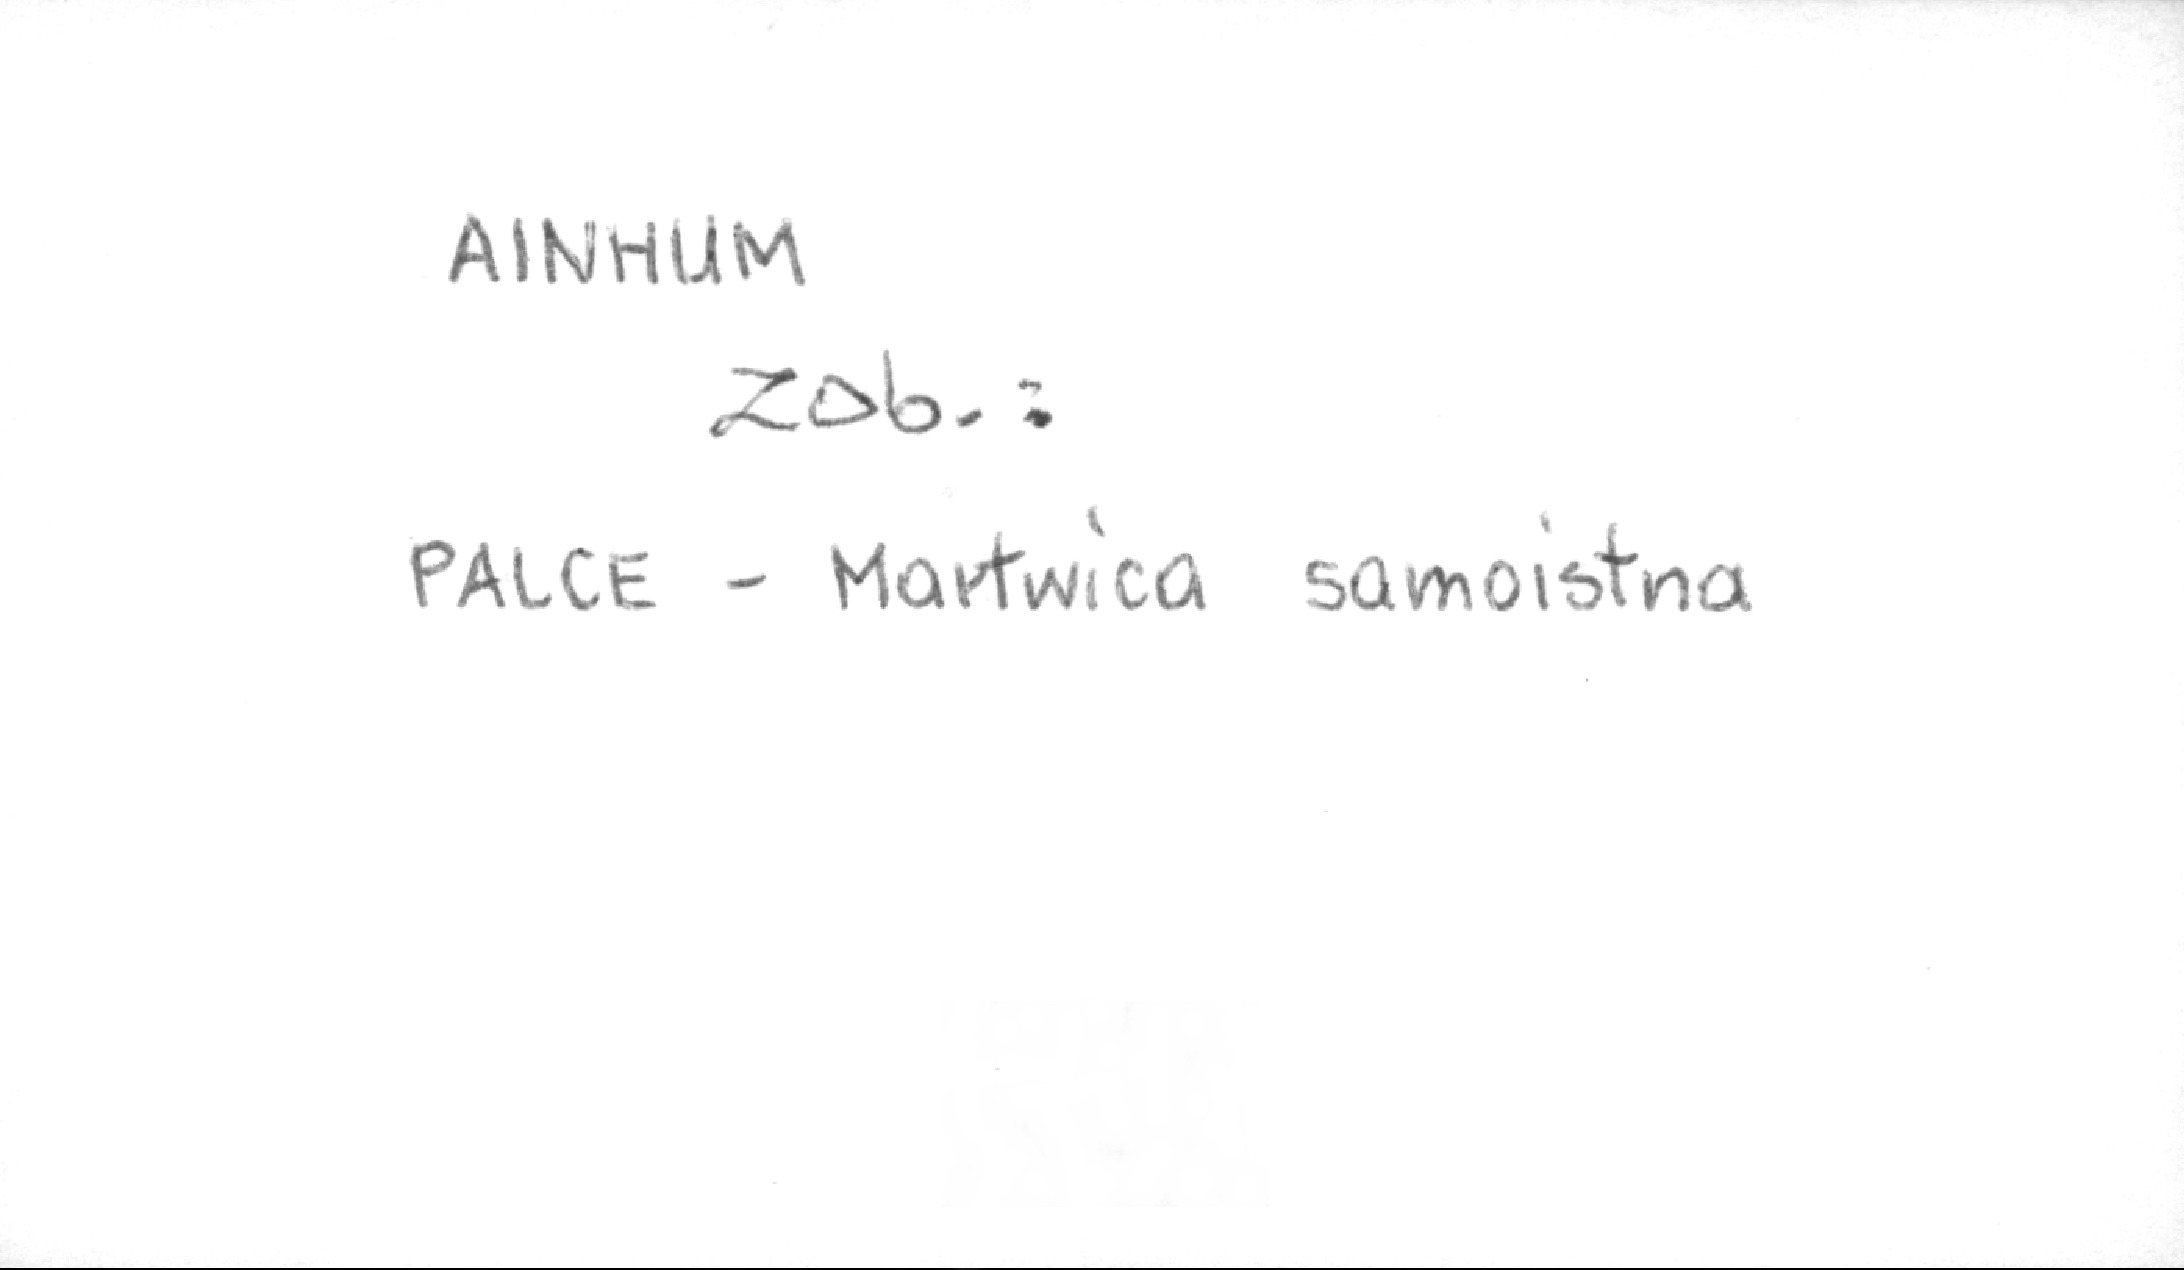 AINHUM
Zob. :
PALCE - Martwica samoistna